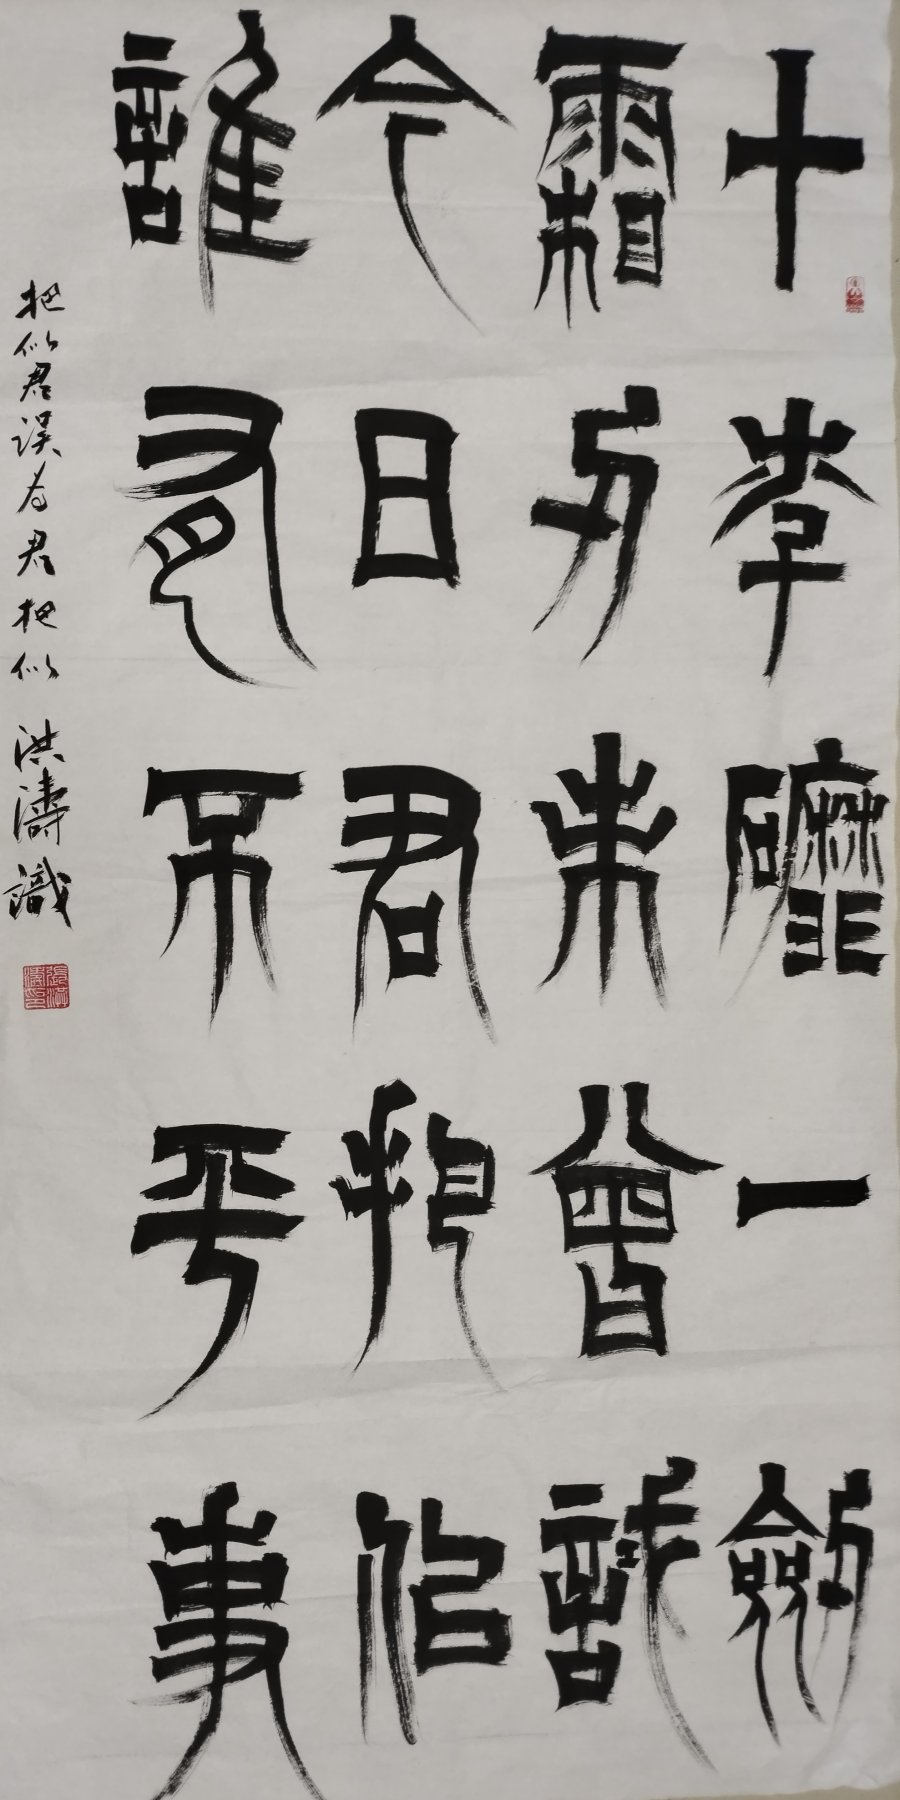 十年䃺一劍
霜刃未曾試
今日君把似
誰有不平事
把似君误为君把似 洪濤識
張洪濤印